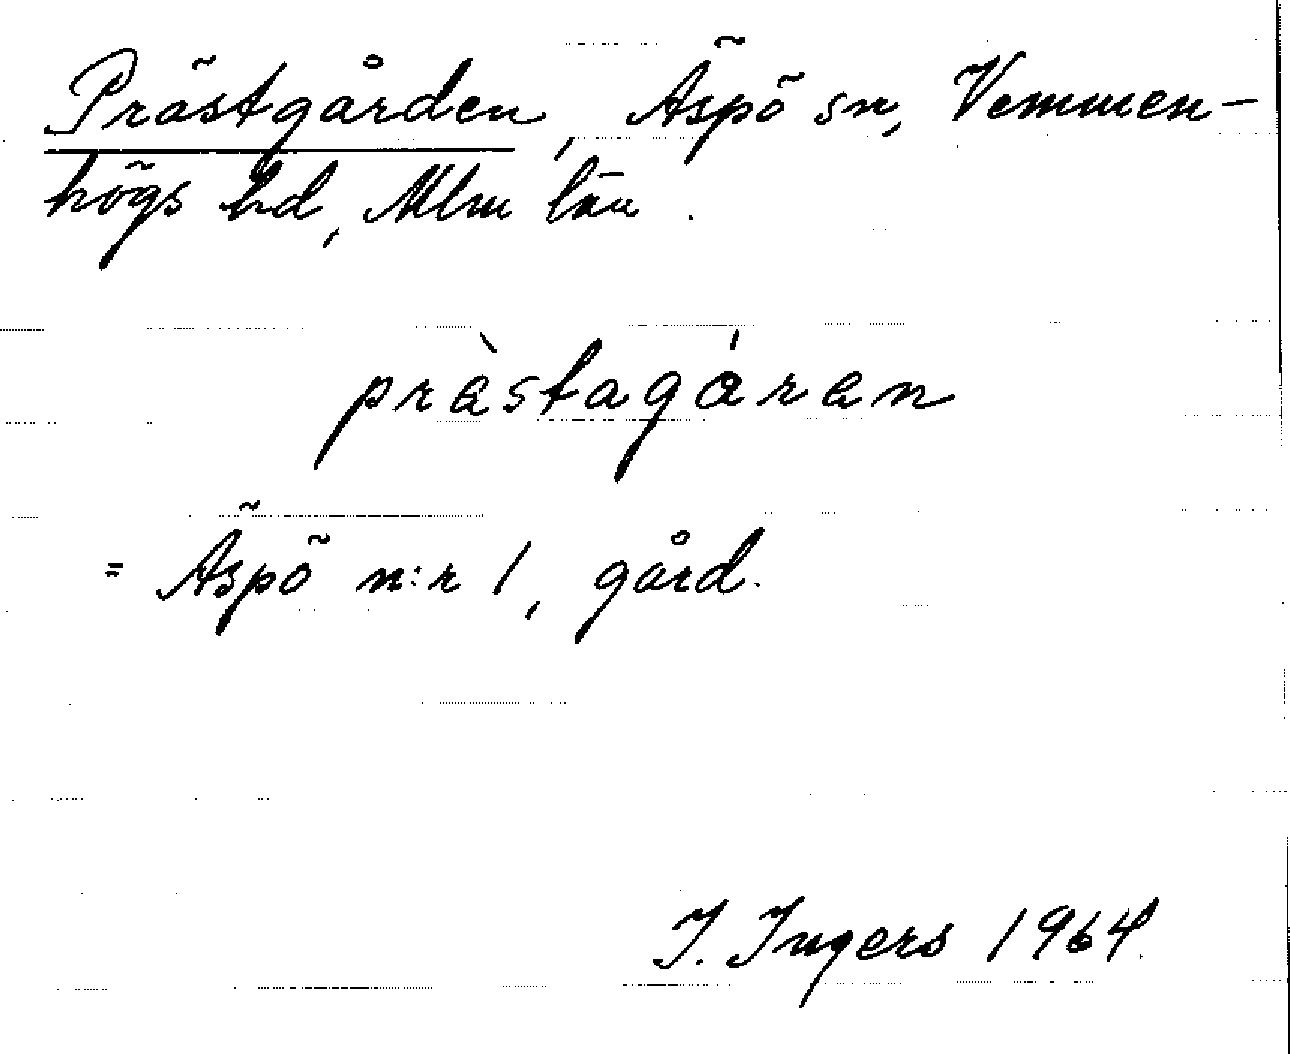 Prästgården, Äspö sn, Vemmen-
högs hd, Mlm län.
pràstagáran
= Äspö n:r 1, gård.
I. Ingers 1964.